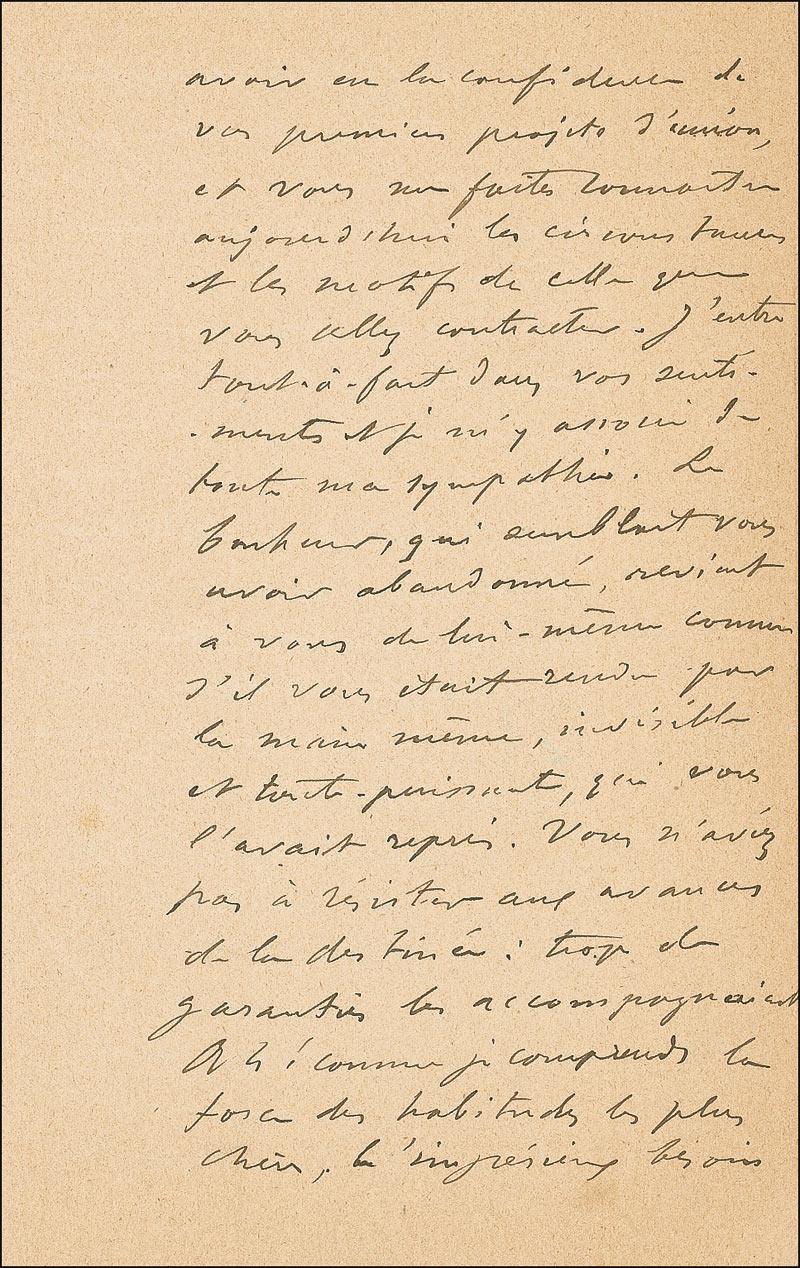 avoir eu la confidence de
vos premiers projets d'union,
et vous me faites connaître
aujourd'hui les circonstances
et les motifs de celle que
vous allez contracter. J'entre
tout-à-fait dans vos senti-
-ments et je m'y associe de
toute ma sympathie. Le
bonheur, qui semblait vous
avoir abandonné, revient
à vous de lui-même comme
s'il vous était rendu par
la main même, invisible
et toute-puissante, qui vous
l'avait repris. Vous n'aviez
pas à résister aux avances
de la destinée : trop de
garanties les accompagnaient
Ah ! comme je comprends la
force des habitudes les plus
chères, l'impérieux besoin